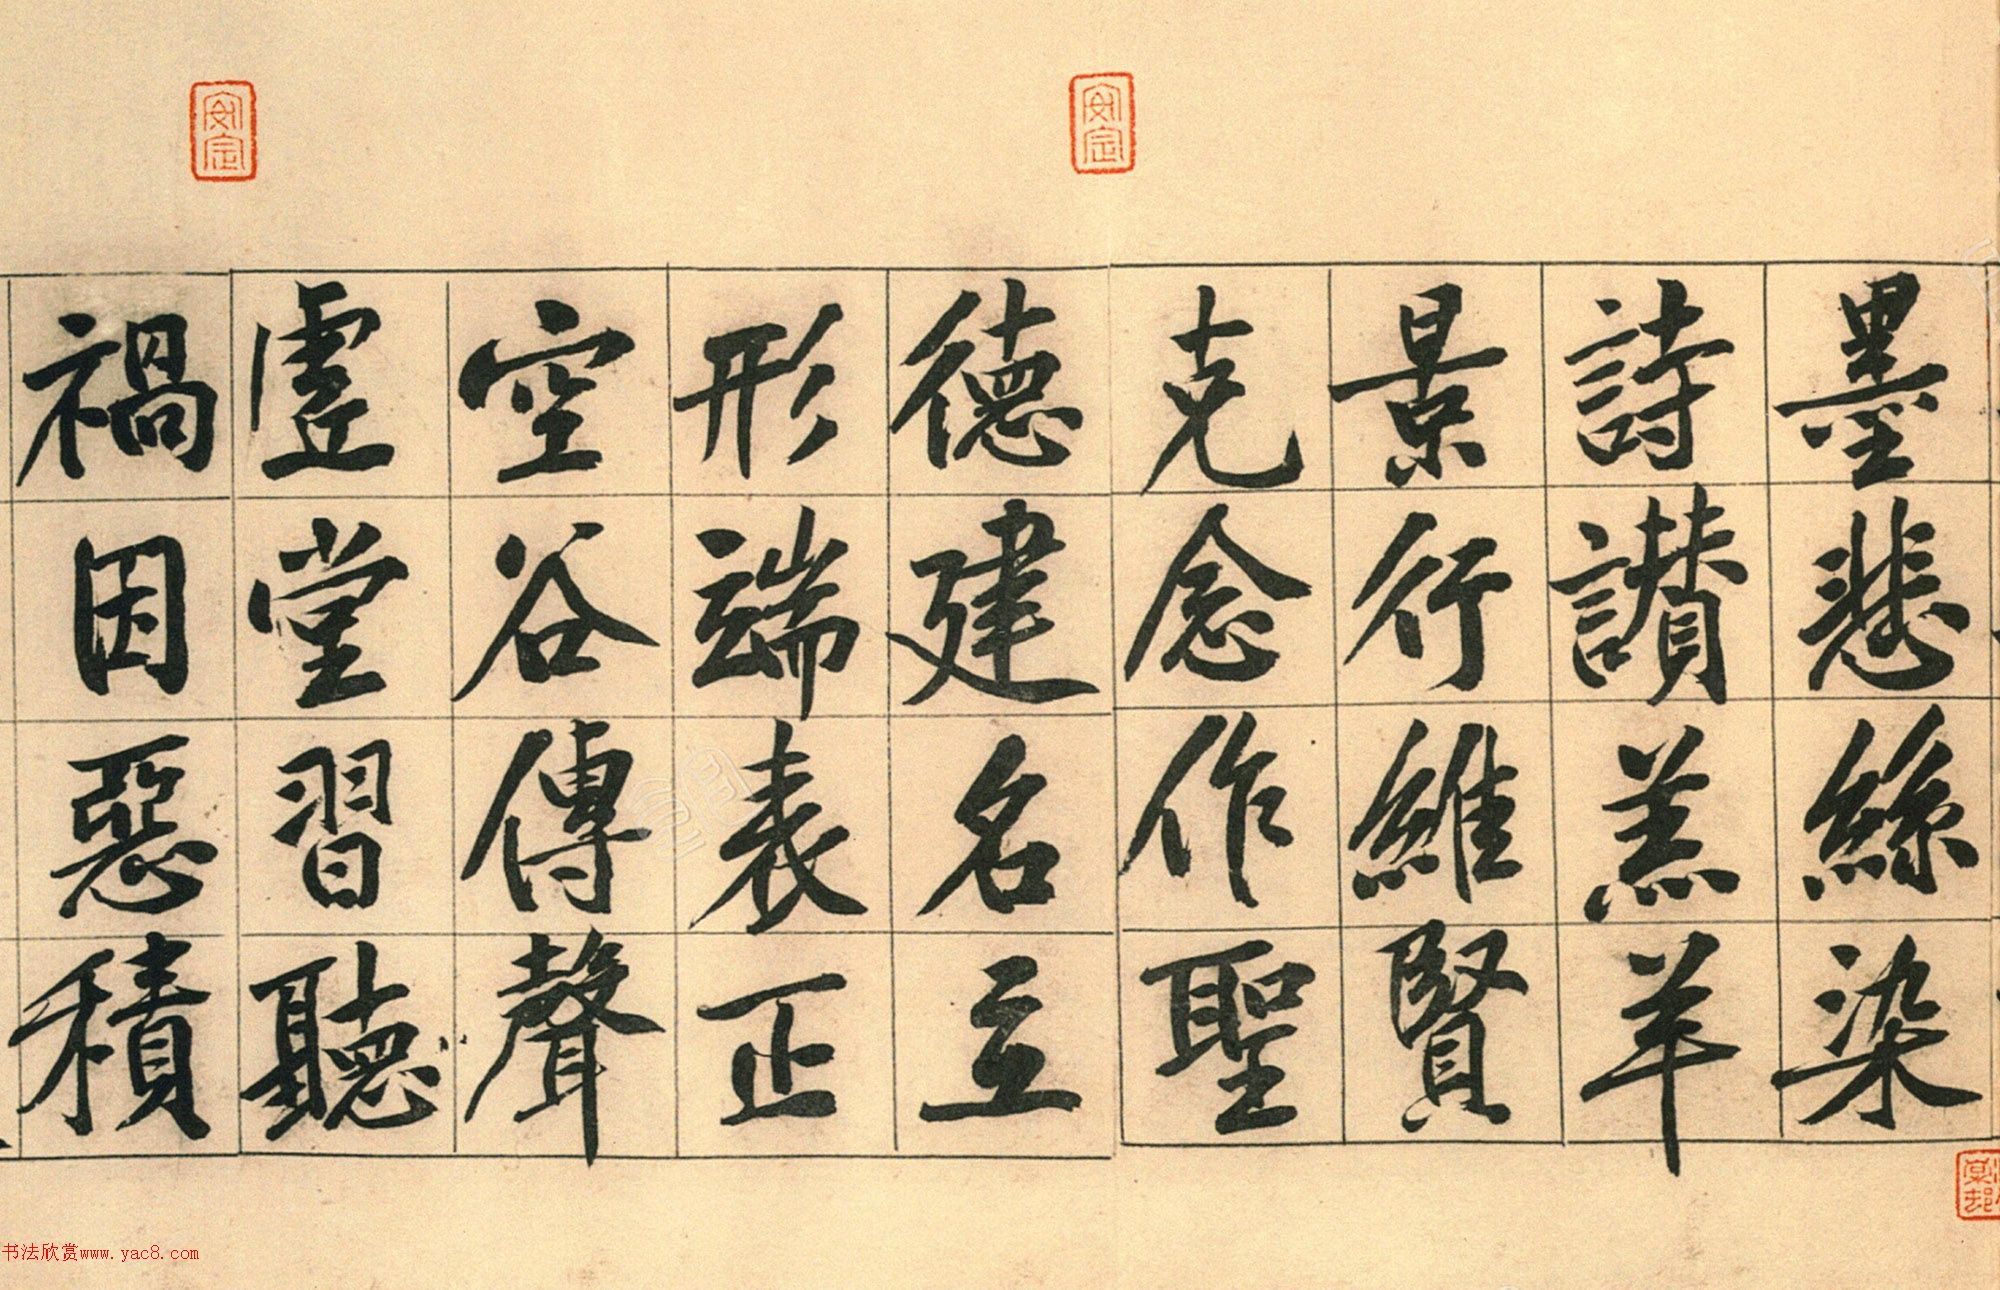 墨悲絲染
詩讃羔羊
景行維賢
克念作聖
德建名立
形端表正
空谷傳聲
虛堂習聽
禍因惡積
安定
安定
书法欣赏www.yac8.com